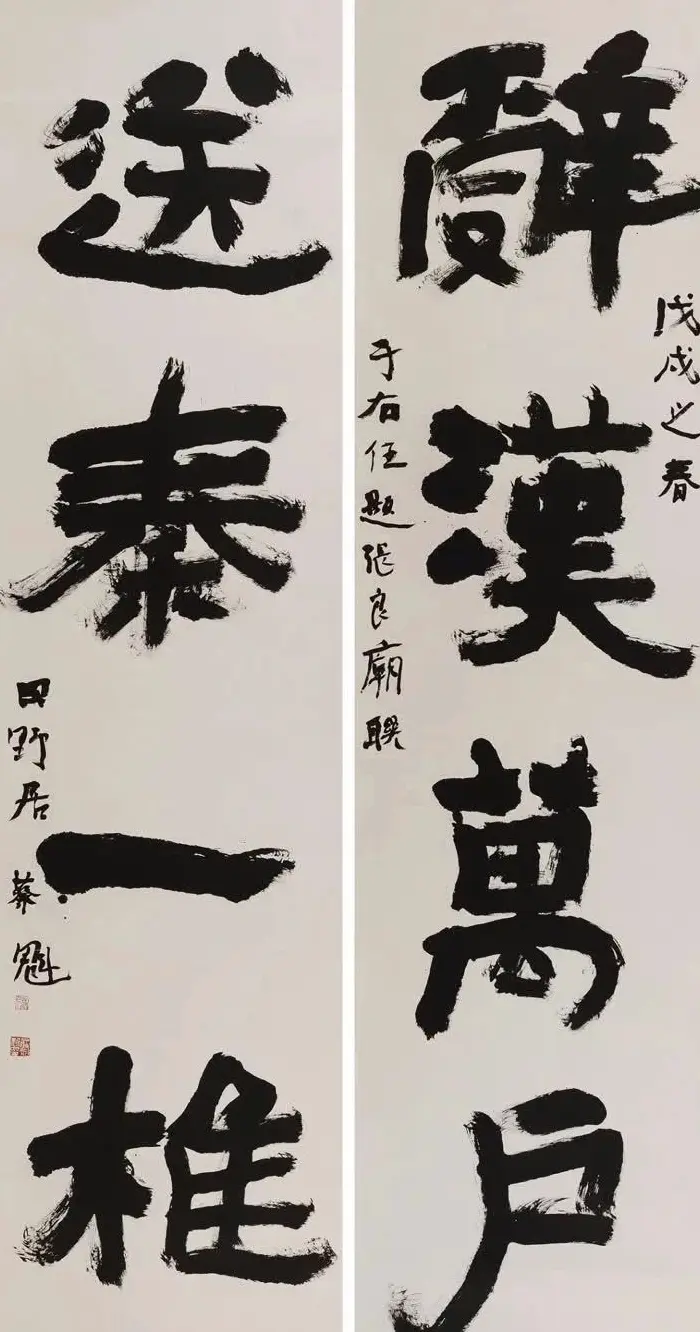 戊戌之春
辭漢萬戶
于右任題張良廟聯
送秦一椎
田野居 蔡魁